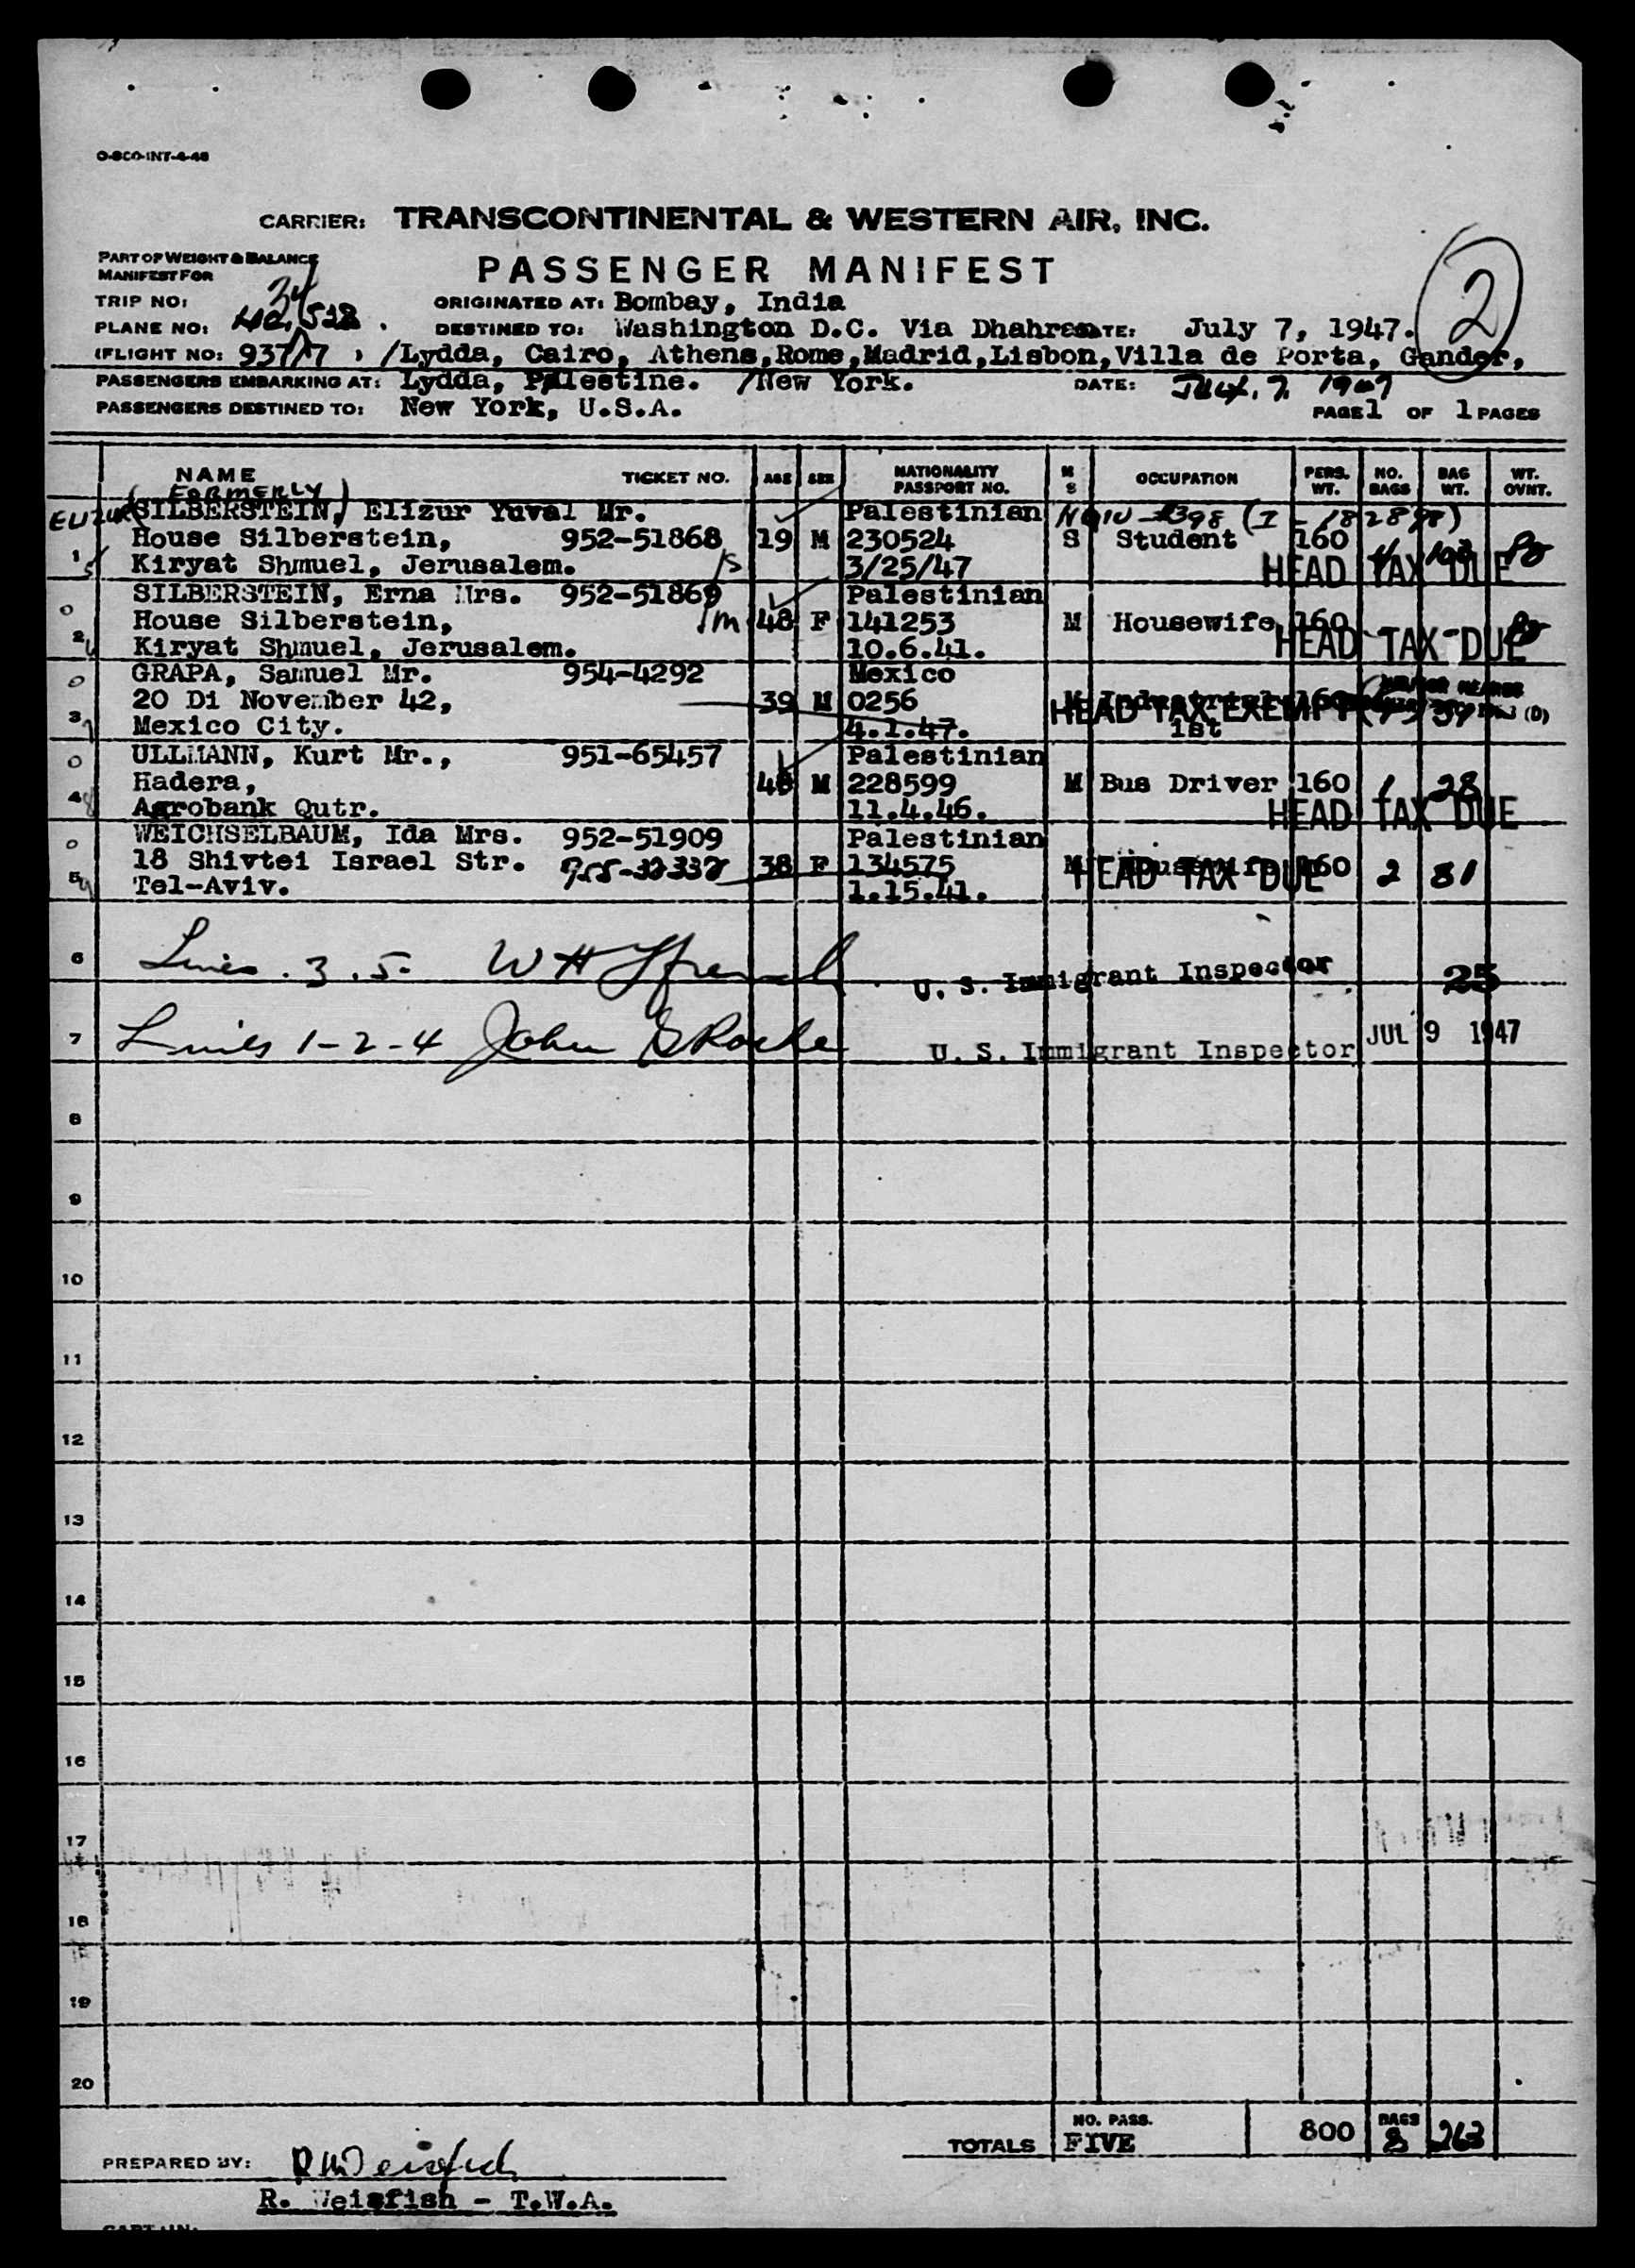 O-SCO-INT-4-46
CARRIER: TRANSCONTINENTAL & WESTERN AIR, INC.
PART OF WEIGHT & BALANCE
MANIFEST FOR
PASSENGER MANIFEST
2
TRIP NO:
ORIGINATED AT: Bombay, India
PLANE NO:
DESTINED TO: Washington D.C. Via Dhahran DATE: July 7, 1947.
(FLIGHT NO: 937/7 ) /Lydda, Cairo, Athens,Rome,Madrid,Lisbon,Villa de Porta, Gander,
PASSENGERS EMBARKING AT: Lydda, Palestine. /New York. DATE: July. 7. 1947
PASSENGERS DESTINED TO: New York, U.S.A. PAGE 1 OF 1 PAGES
NAME TICKET NO. AGE SEX NATIONALITY PASSPORT NO. M S OCCUPATION PERS. WT. NO. BAGS BAG WT. WT. OVNT.
(FORMERLY)
ELIZUR SILBERSTEIN, Elizur Yuval Mr. Palestinian
1 House Silberstein, 952-51868 19 M 230524 S Student 160
Kiryat Shmuel, Jerusalem. 3/25/47 HEAD TAX DUE
SILBERSTEIN, Erna Mrs. 952-51869 Palestinian
2 House Silberstein, 48 F 141253 M Housewife 160
Kiryat Shmuel, Jerusalem. 10.6.41. HEAD TAX DUE
GRAPA, Samuel Mr. 954-4292 Mexico
3 20 Di November 42, 39 M 0256 M 160
HEAD TAX EXEMPT
Mexico City. 4.1.47. ist
ULLMANN, Kurt Mr., 951-65457 Palestinian
4 Hadera, M 228599 M Bus Driver 160 1 28
Agrobank Qutr. 11.4.46. HEAD TAX DUE
WEICHSELBAUM, Ida Mrs. 952-51909 Palestinian
5 18 Shivtei Israel Str. 38 F 134575 M 160 2 81
HEAD TAX DUE
Tel-Aviv. 1.15.41.
6 Lines . 3 . 5. U. S. Immigrant Inspector 25
7 Lines 1-2-4 John U. S. Immigrant Inspector JUL 9 1947
8
9
10
11
12
13
14
15
16
17
18
19
20
TOTALS NO. PASS. FIVE 800 BAGS 8 263
PREPARED BY: R Weisfish
R. Weisfish - T.W.A.
CAPTAIN: